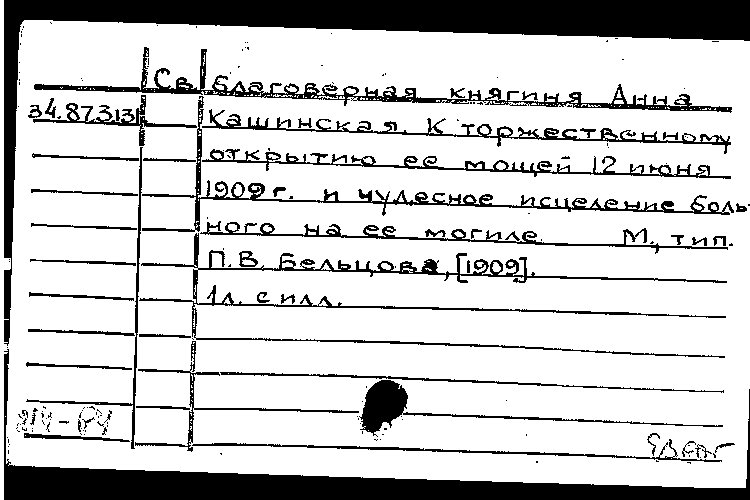 Св. благоверная княгиня Анна
34.87313 Кашинская. К торжественному
открытию ее мощей 12 июня
1909 г. и чудесное исцеление боль-
ного на ее могиле М., тип.
П.В. Бельцова, [1909].
1л. с илл.
214-84